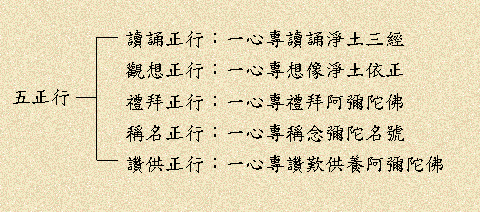 讀誦正行：一心專讀誦淨土三經
觀想正行：一心專想像淨土依正
五正行
禮拜正行：一心專禮拜阿彌陀佛
稱名正行：一心專稱念彌陀名號
讚供正行：一心專讚歎供養阿彌陀佛